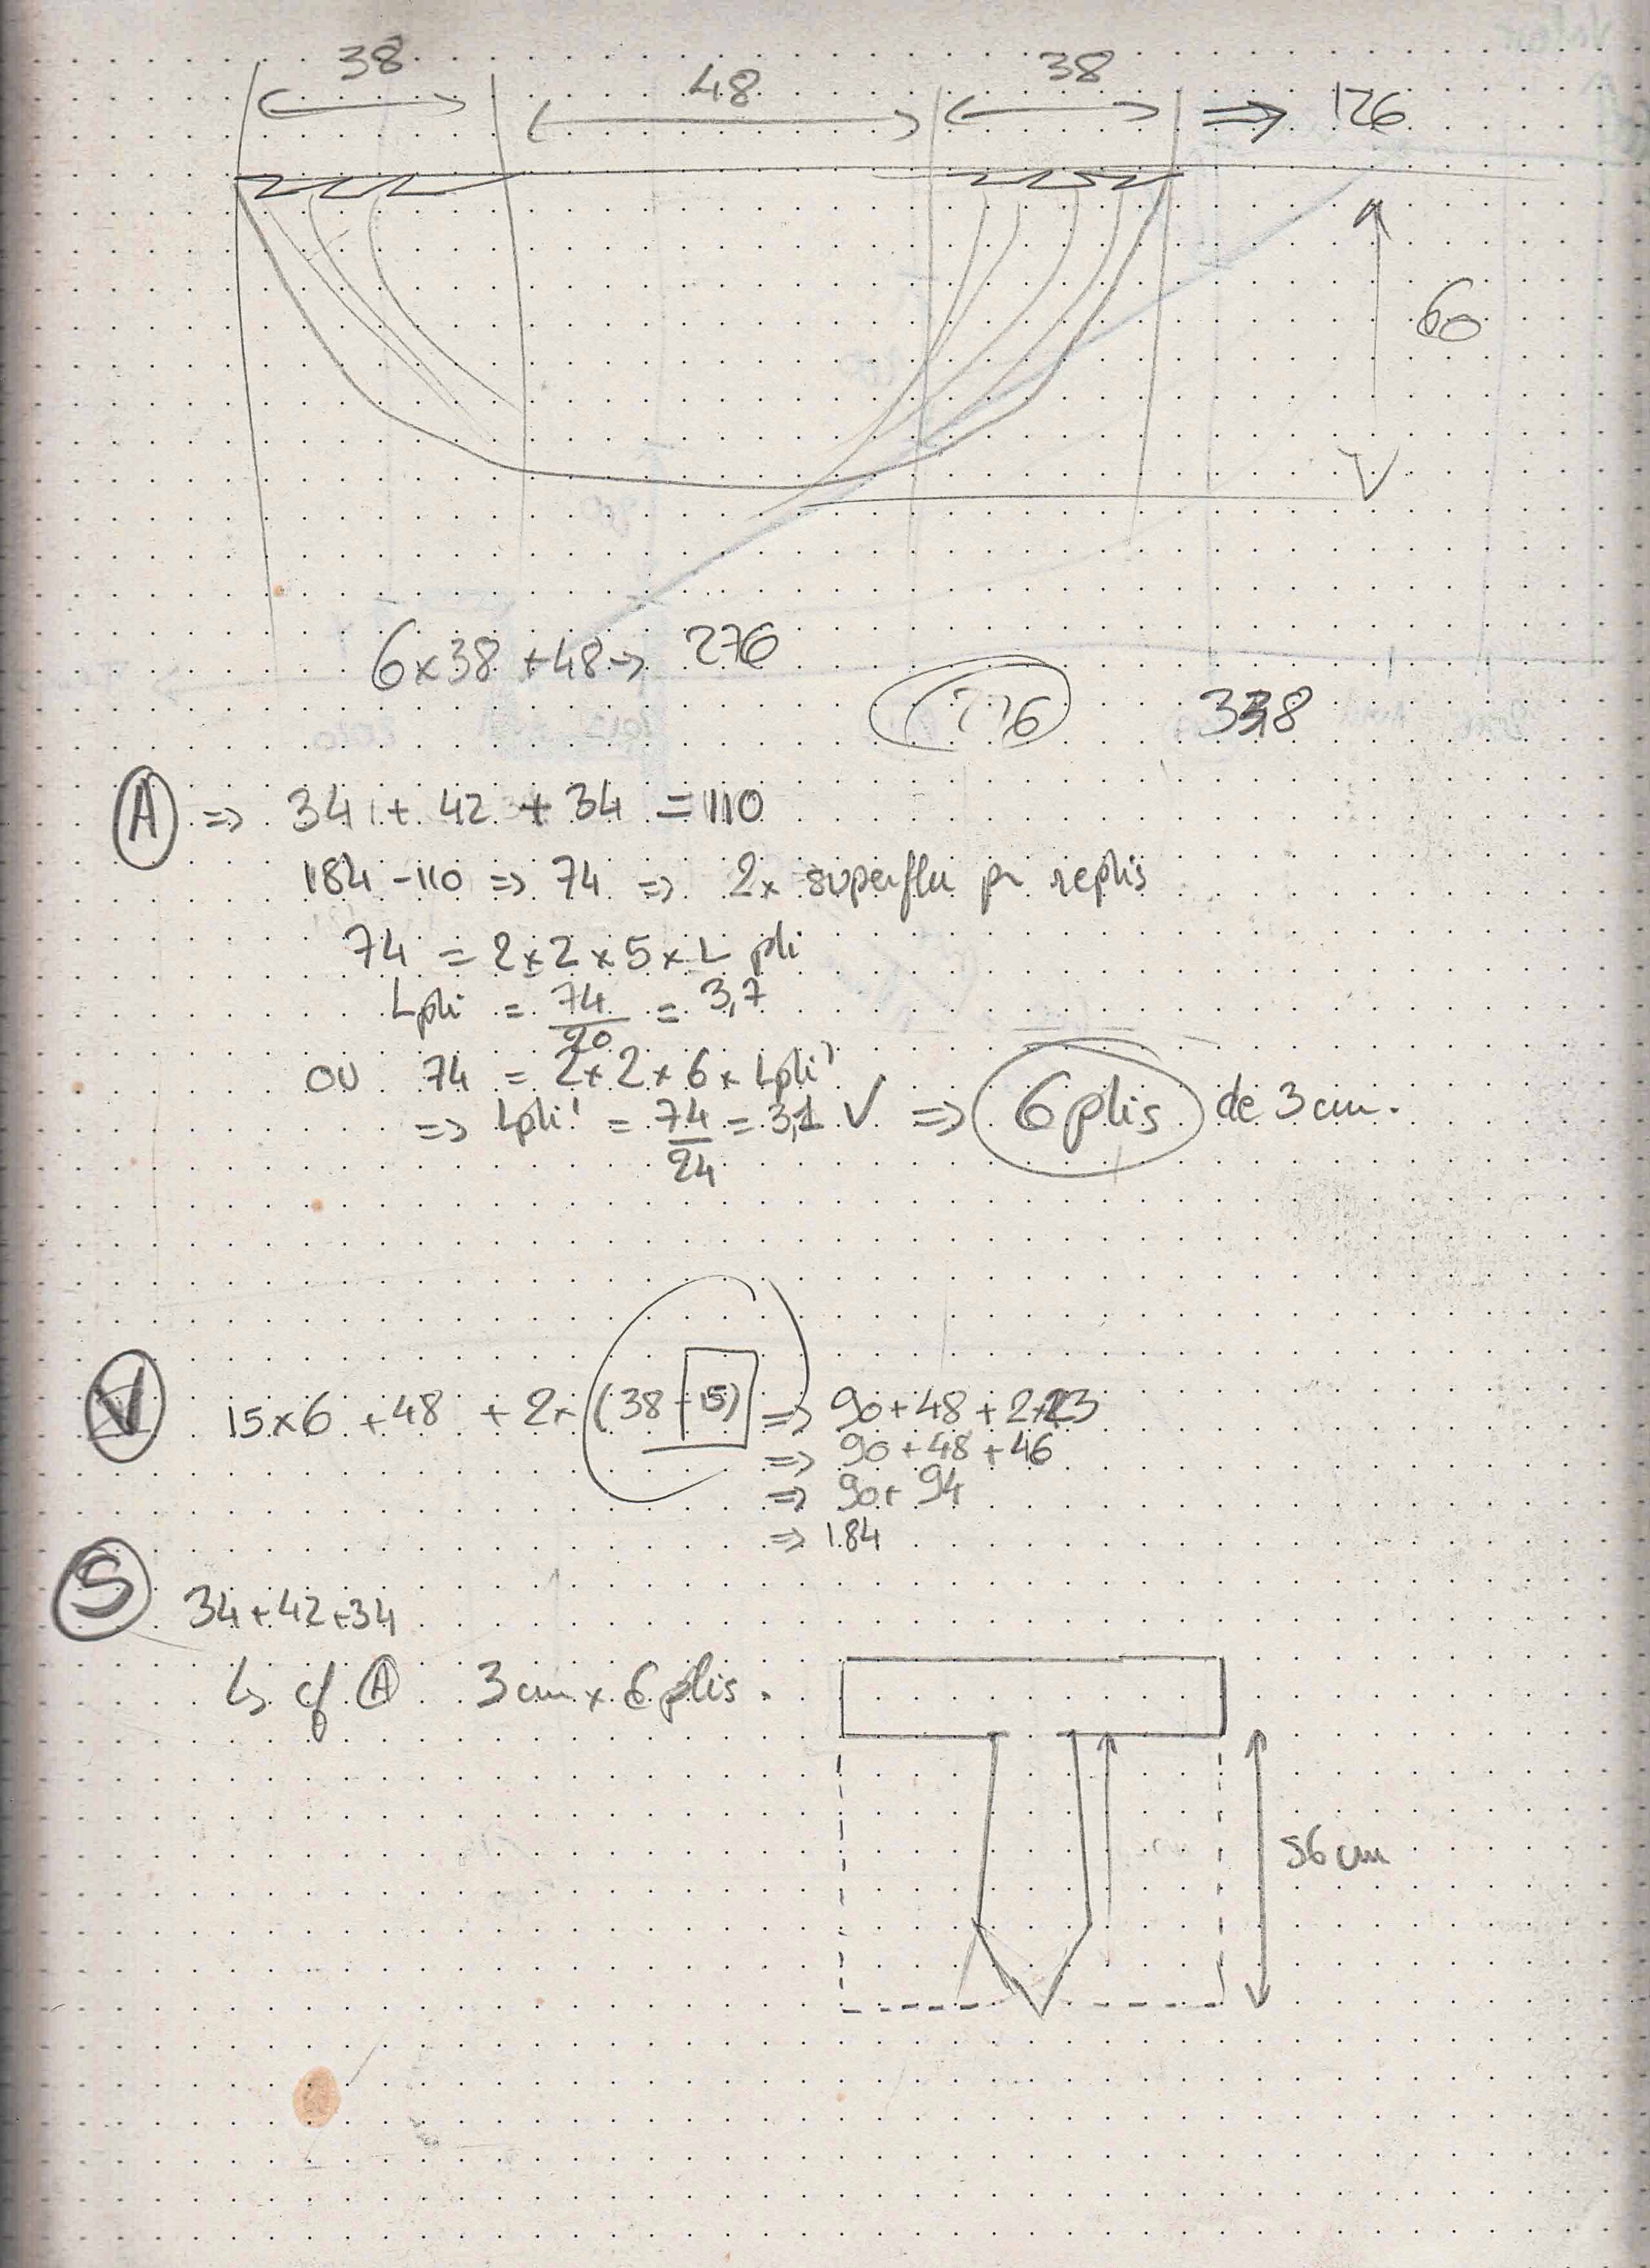 38 48 38 ⇒ 126
60
6x38 +48 → 276
276 338
A ⇒ 34 + 42 + 34 = 110
184 - 110 ⇒ 74 ⇒ 2x superflu pr replis
74 = 2x2x5xL pli
Lpli = 74/20 = 3,7
ou 74 = 2x2x6xLpli'
⇒ Lpli' = 74/24 = 3,1 V ⇒ 6 plis de 3 cm.
V 15x6 +48 + 2x(38-15) ⇒ 90+48+2x23
⇒ 90+48+46
⇒ 90+94
⇒ 184
S 34+42+34
↳ cf A 3cm x 6 plis.
56 cm